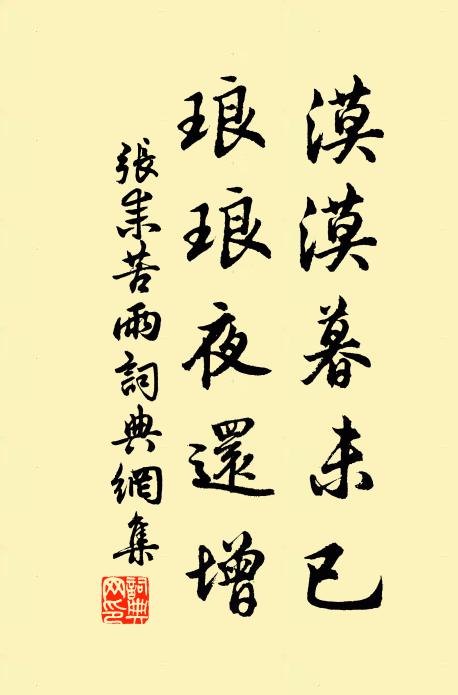 漠漠暮未已
琅琅夜還增
張耒苦雨詞典網集
詞典網印